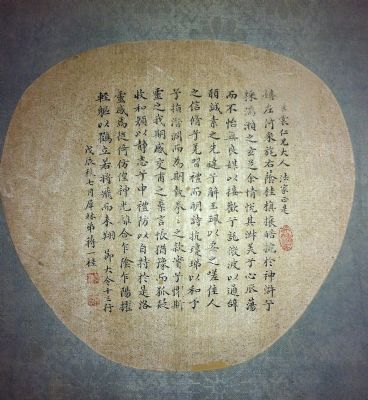 裳仁兄大人 法家正是
嬉左倚采旄右蔭桂旗攘皓捥於神滸兮
採湍瀨之玄芝余情悅其淑美兮心振蕩
而不怡無良媒以接歡兮託微波以通辭
願誠素之先達兮解玉珮以要之嗟佳人
之信脩兮羌習禮而明詩抗瓊珶以和予
兮指潛淵而為期執拳拳之款實兮懼斯
靈之我期感交甫之棄言悵猶豫而狐疑
收和顏以靜志兮申禮防以自持於是洛
靈感焉徙倚仿偟神光離合乍陰乍陽擢
輕軀以鶴立若將飛而未翔 節大令十三行
戊辰秋七月屏林弟蔣一桂